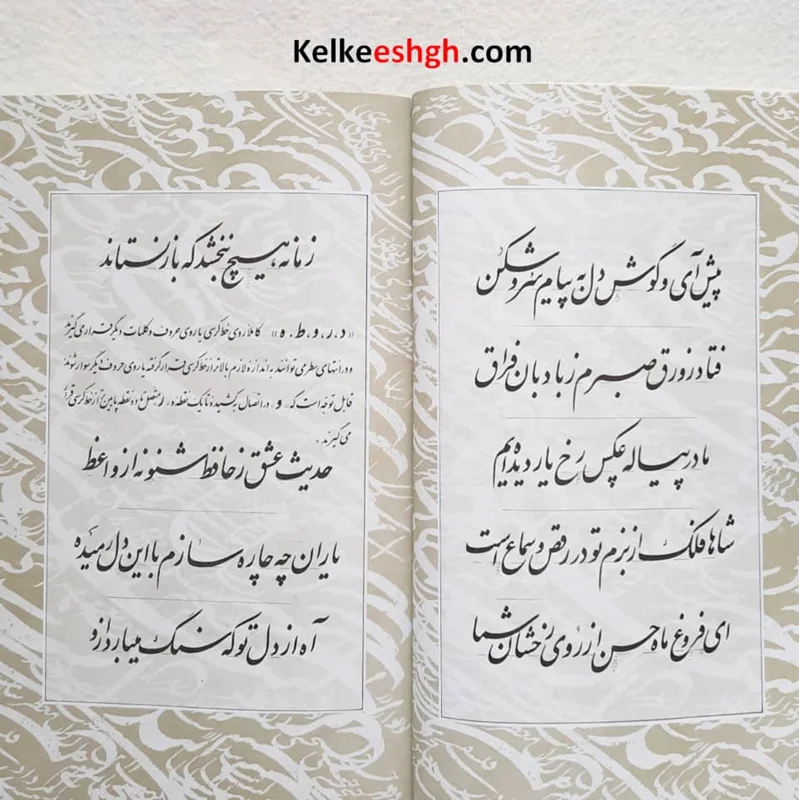 Kelkeeshgh.com
پیش آی و گوش دل به پیام سروش کن
فتاد زورق صبرم ز بادبان فراق
ما در پیاله عکس رخ یار دیده‌ایم
شاها فلک از بزم تو در رقص و سماع است
ای فروغ ماه حسن از روی رخشان شما
زمانه هیچ نبخشد که باز نستاند
«د . ر . و . ط . ه» کاملاً روی خط کرسی یا روی حروف و کلمات دیگر قرار می‌گیرند
و در انتهای سطر می‌توانند به اندازه لازم بالاتر از خط کرسی قرار گرفته یا روی حروف دیگر سوار شوند
قابل توجه است که «و» در اتصال به کشیده تا یک نقطه و «ر» متصل تا ده نقطه پایین‌تر از خط کرسی قرار
می‌گیرند .
حدیث عشق ز حافظ شنو نه از واعظ
یاران چه چاره سازم با این دل رمیده
آه از دل تو که سنگ میبارد ازو